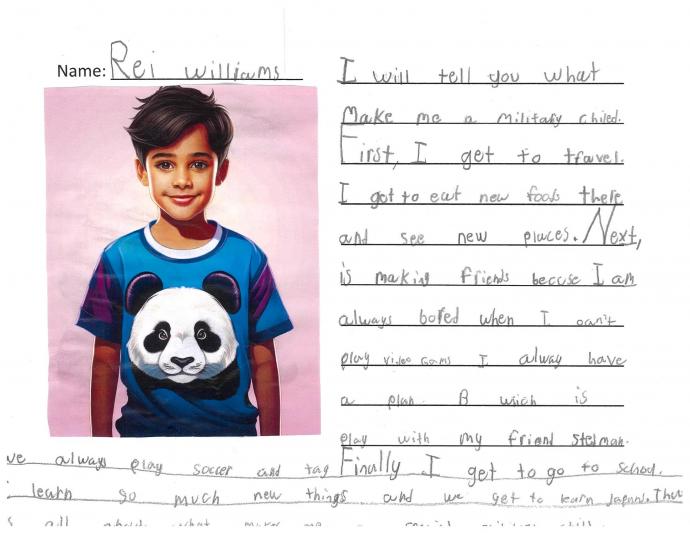 Name: Rei williams
I will tell you what
Make me a military chiled.
First, I get to travel.
I got to eat new foods there
and see new places. Next,
is making friends becouse I am
always bored when I can't
play video gams I alway have
a plan B wich is
play with my friend Stedman.
ve always play soccer and tag Finally I get to go to school.
learn so much new things and we get to learn Japans. That
s all about what makes me a special